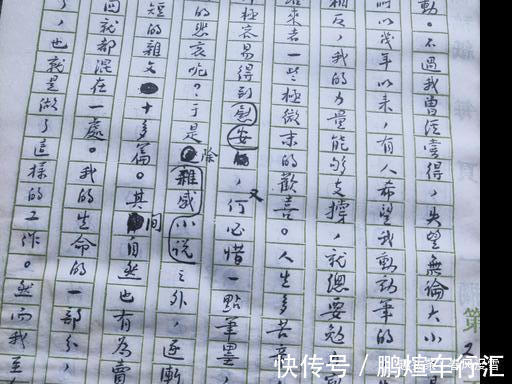 動。不過我曾經覺得，失望無論大小
以幾年以來，有人希望我動動筆的
相反，我的力量能够支撐，就總要勉
來者一些極微末的歡喜。人生多苦
極容易得到慰安，又何必惜一點筆墨，
的悲哀呢？于是除雜感小說之外，逐漸
短的雜文十多篇。其间自然也有為賣
回就都混在一處。我的生命的一部分，
了，也就是做了這樣的工作。然而我至
第
快传号 / 鹏煊车行汇